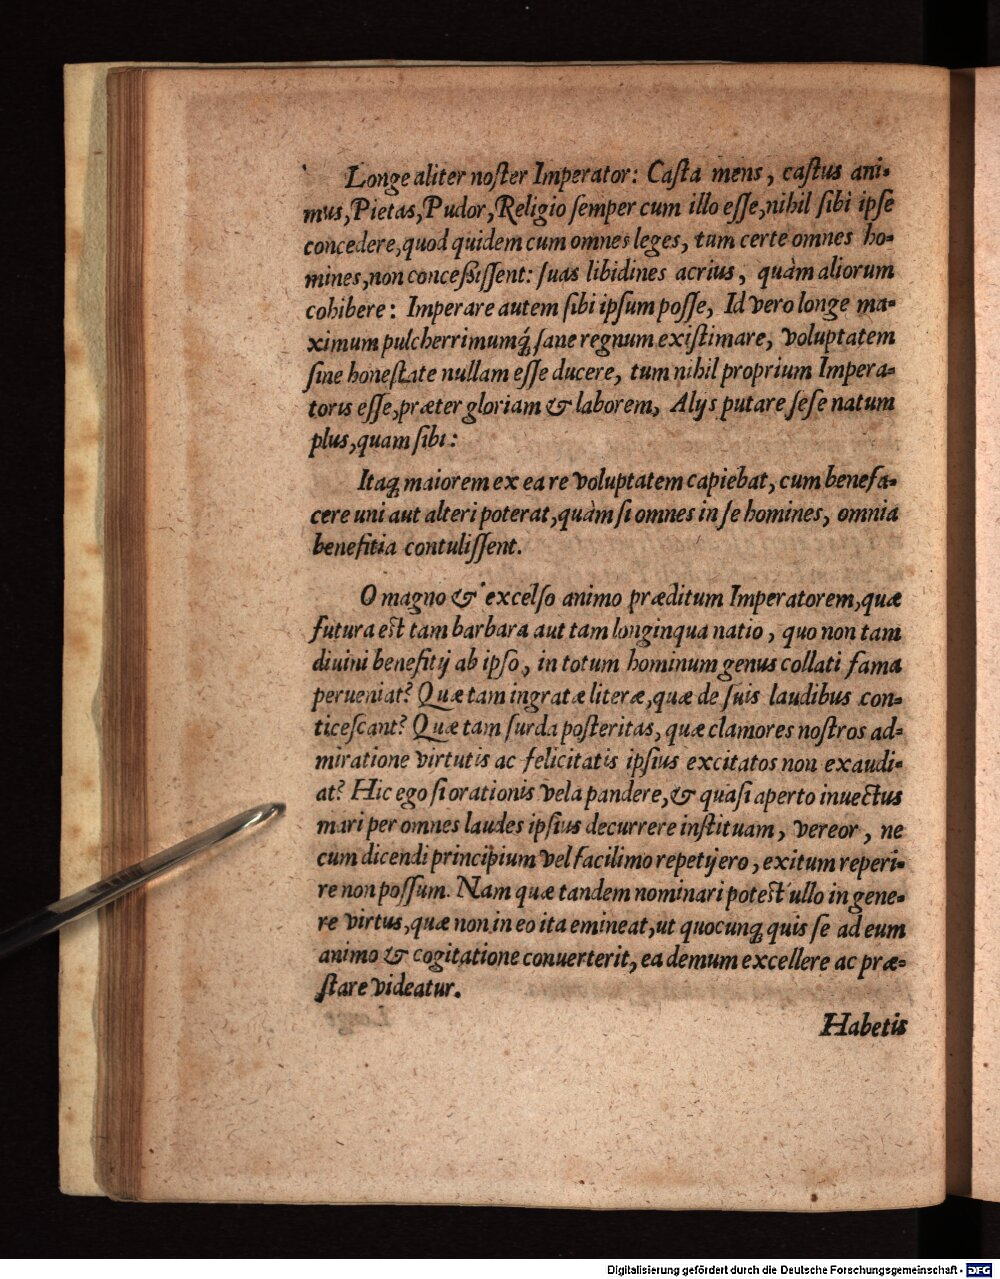 Longe aliter noſter Imperator: Caſta mens, caſtus ani-
mus, Pietas, Pudor, Religio ſemper cum illo eſſe, nihil ſibi ipſe
concedere, quod quidem cum omnes leges, tum certe omnes ho-
mines, non conceßiſſent: ſuas libidines acrius, quàm aliorum
cohibere: Imperare autem ſibi ipſum poſſe, Id vero longe ma-
ximum pulcherrimumq́; ſane regnum exiſtimare, voluptatem
ſine honeſtate nullam eſſe ducere, tum nihil proprium Impera-
toris eſſe, præter gloriam & laborem, Alijs putare ſeſe natum
plus, quam ſibi:
Itaq; maiorem ex ea re voluptatem capiebat, cum benefa-
cere uni aut alteri poterat, quàm ſi omnes in ſe homines, omnia
benefitia contuliſſent.
O magno & excelſo animo præditum Imperatorem, quæ
futura est tam barbara aut tam longinqua natio, quo non tam
diuini benefitij ab ipſo, in totum hominum genus collati fama
perueniat? Quæ tam ingratæ literæ, quæ de ſuis laudibus con-
ticeſcant? Quæ tam ſurda poſteritas, quæ clamores noſtros ad-
miratione virtutis ac felicitatis ipſius excitatos non exaudi-
at? Hic ego ſi orationis vela pandere, & quaſi aperto inuectus
mari per omnes laudes ipſius decurrere inſtituam, vereor, ne
cum dicendi principium vel facilimo repetijero, exitum reperi-
re non poſſum. Nam quæ tandem nominari potest ullo in gene-
re virtus, quæ non in eo ita emineat, ut quocunq; quis ſe ad eum
animo & cogitatione conuerterit, ea demum excellere ac præ-
ſtare videatur.
Habetis
Digitalisierung gefördert durch die Deutsche Forschungsgemeinschaft - DFG